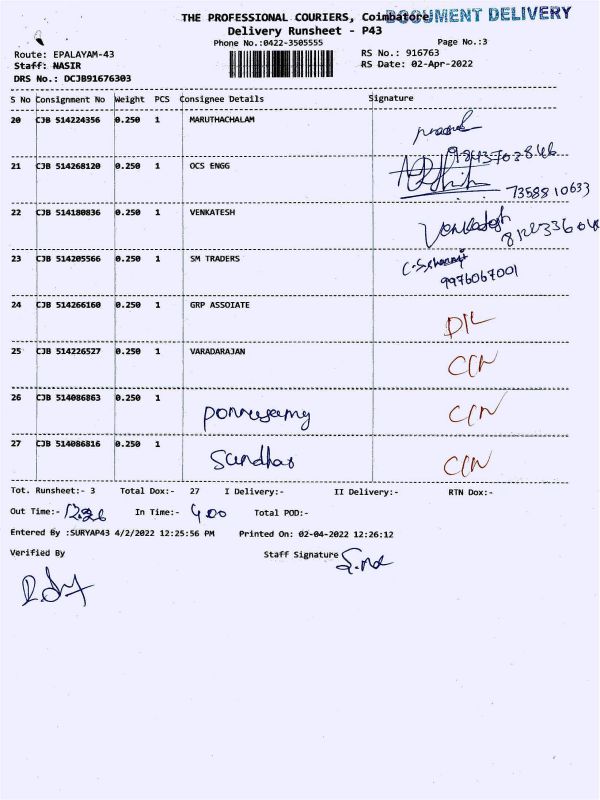 THE PROFESSIONAL COURIERS, Coimbatore
DOCUMENT DELIVERY
Delivery Runsheet - P43
Phone No.:0422-3505555 Page No.:3
Route: EPALAYAM-43 RS No.: 916763
Staff: NASIR RS Date: 02-Apr-2022
DRS No.: DCJB91676303
S No Consignment No Weight PCS Consignee Details Signature
20 CJB 514224356 0.250 1 MARUTHACHALAM
9843702846
21 CJB 514268120 0.250 1 OCS ENGG
7358810633
22 CJB 514180836 0.250 1 VENKATESH Venkatesh
23 CJB 514205566 0.250 1 SM TRADERS
9976067001
24 CJB 514266160 0.250 1 GRP ASSOIATE D/L
25 CJB 514226527 0.250 1 VARADARAJAN C/N
26 CJB 514086863 0.250 1 ponnusamy C/N
27 CJB 514086816 0.250 1 Sundhar C/N
Tot. Runsheet:- 3 Total Dox:- 27 I Delivery:- II Delivery:- RTN Dox:-
Out Time:- 12.26 In Time:- 4.00 Total POD:-
Entered By :SURYAP43 4/2/2022 12:25:56 PM Printed On: 02-04-2022 12:26:12
Verified By Staff Signature